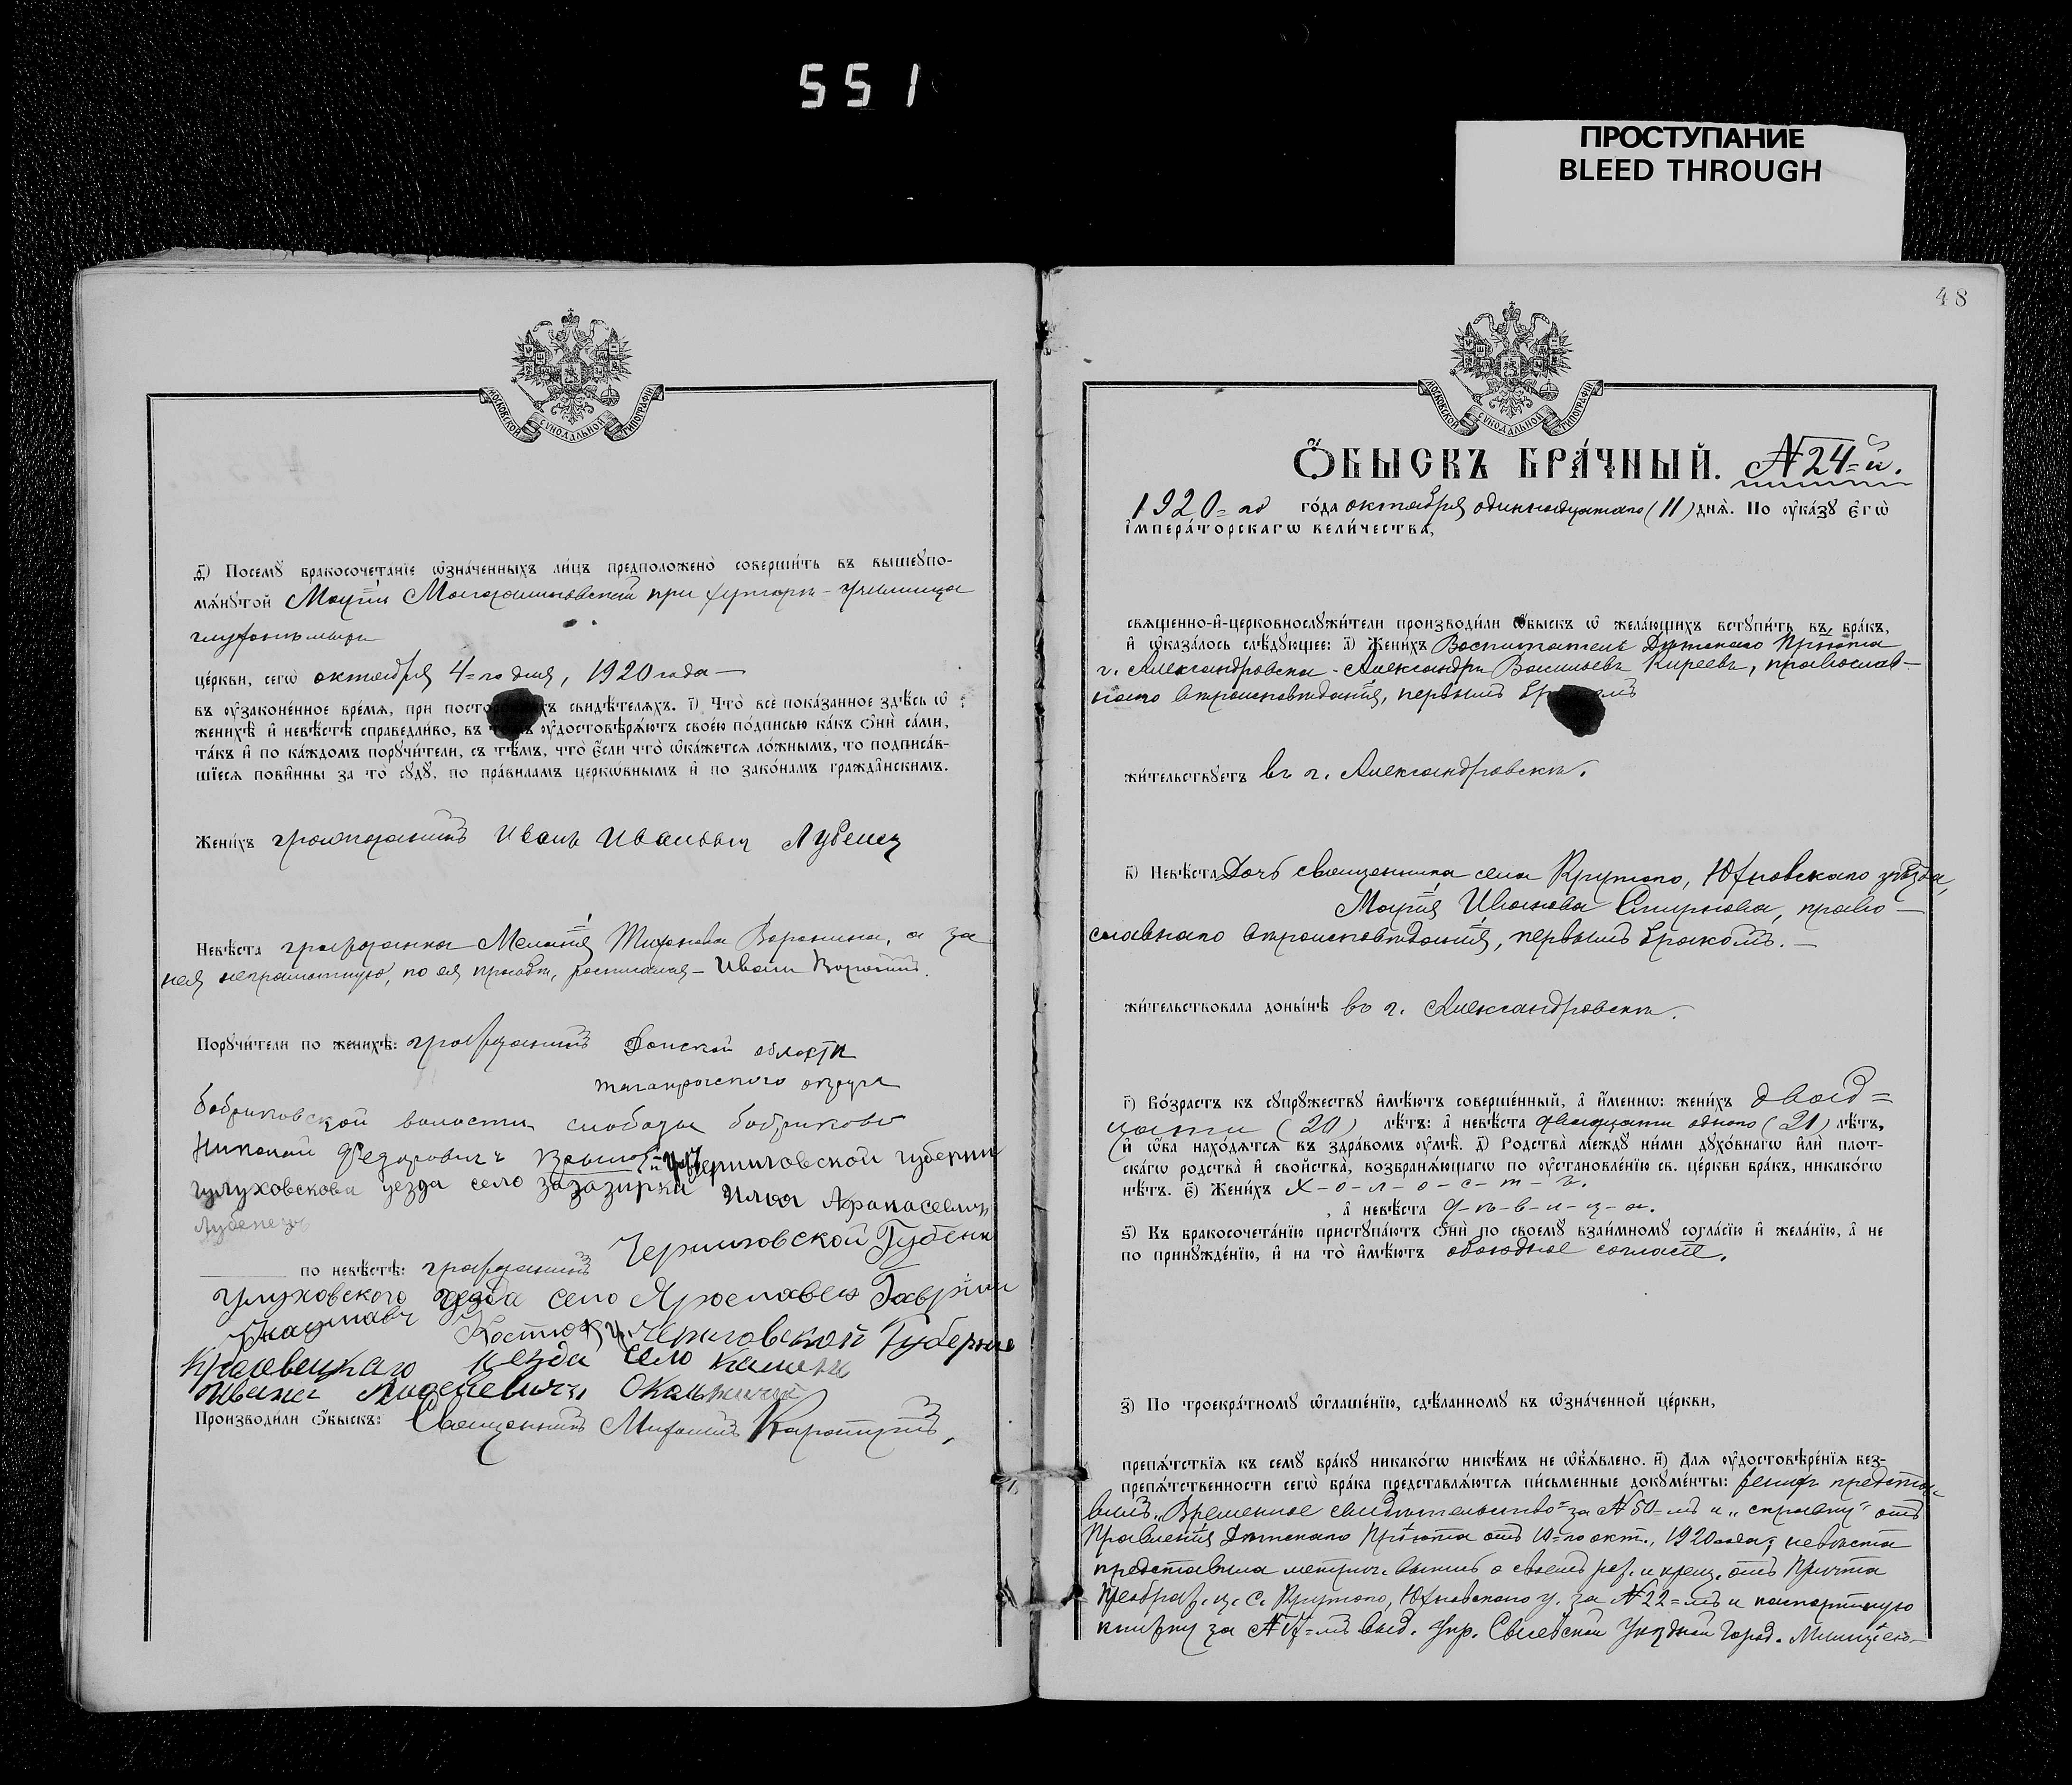 551
ПРОСТУПАНИЕ
BLEED THROUGH
МОСКОВСКОЙ СѴНОДАЛЬНОЙ ТИПОГРАФІИ
ѳ҃) Посемꙋ бракосочета́нїе ѡ҆зна́ченныхъ ли́цъ предположено̀ соверши́ть въ вышеꙋпо-
мѧ́нꙋтой Маріи при хуторѣ - училища
глухонѣмыхъ
це́ркви, сегѡ̀ октября 4=го дня, 1920 года —
въ ᲂу҆зако́ненное вре́мѧ, при свидѣ́телѧхъ. і҃) Что̀ всѐ пока́занное здѣ́сь ѡ҆
женихѣ̀ и҆ невѣ́стѣ справедли́во, въ ᲂу҆достовѣрѧ́ютъ свое́ю по́дписью ка́къ ѻ҆нѝ са́ми,
та́къ и҆ по ка́ждомъ порꙋчи́тели, съ тѣ́мъ, что̀ є҆́сли что̀ ѡ҆ка́жетсѧ ло́жнымъ, то подписа́в-
шїесѧ пови́нны за то̀ сꙋдꙋ̀, по пра́виламъ церко́внымъ и҆ по зако́намъ гражда́нскимъ.
Жени́хъ гражданинъ Иванъ Ивановъ Лубенец
Невѣ́ста гражданка Меланія Тихонова Воронина, а за
нея неграмотную, по ея просьбѣ, росписался - Иванъ
Порꙋчи́тели по женихѣ̀: гражданинъ Донской области
таганрогского округа
бобриковской волости слободы бобриково
Николай Федоровичъ Черниговской губернии
глуховскова уезда село зазирки Илья Афанасевич
Лубенецъ
по невѣ́стѣ: гражданинъ Черниговской Губени
Глуховского уезда село Ярославец Гаврiил
Костюк Черниговской Губерние
Кролевецкаго уезда село камень
Производи́ли ѻ҆́быскъ: Священникъ Михаилъ
48
МОСКОВСКОЙ СѴНОДАЛЬНОЙ ТИПОГРАФІИ
Ѻ҆́БЫСКЪ БРА́ЧНЫЙ. №24=й.
1920=го го́да октября одиннадцатаго (11) днѧ̀. По ᲂу҆ка́зꙋ є҆гѡ̀
і҆мпера́торскагѡ вели́чества,
свѧще́нно-и҆-церковнослꙋжи́тели производи́ли ѻ҆́быскъ ѡ҆ жела́ющихъ встꙋпи́ть въ бра́къ,
и҆ ѡ҆каза́лось слѣ́дꙋющее: а҃) Жени́хъ Воспитатель Дѣтскаго Пріюта
г. Александровска - Александръ Васильевъ Киреевъ, православ-
наго вѣроисповѣданія, первымъ
жи́тельствꙋетъ въ г. Александровскѣ.
в҃) Невѣ́ста Дочь священника села Крутого, Юхновскаго уѣзда,
Марія Иванова Смирнова, право-
славнаго вѣроисповѣданія, первымъ бракомъ. —
жи́тельствовала доны́нѣ въ г. Александровскѣ.
г҃) Во́зрастъ къ сꙋпрꙋ́жествꙋ и҆мѣ́ютъ соверше́нный, а҆ и҆́меннѡ: жени́хъ двад=
цати (20) лѣ́тъ: а҆ невѣ́ста двадцати одного (21) лѣ́тъ,
и҆ ѻ҆́ба нахо́дѧтсѧ въ здра́вомъ ᲂу҆мѣ̀. д҃) Родства̀ ме́ждꙋ ни́ми дꙋхо́внагѡ и҆лѝ пло́т-
скагѡ родства̀ и҆ сво́йства, возбранѧ́ющагѡ по ᲂу҆становле́нїю св. це́ркви бра́къ, никако́гѡ
нѣ́тъ. є҃) Жени́хъ х-о-л-о-с-т-ъ.
, а҆ невѣ́ста д-ѣ-в-и-ц-а.
ѕ҃) Къ бракосочета́нїю пристꙋпа́ютъ ѻ҆нѝ по своемꙋ̀ взаи́мномꙋ согла́сїю и҆ жела́нїю, а҆ не
по принꙋжде́нїю, и҆ на то̀ и҆мѣ́ютъ обоюдное согласіе.
з҃) По троекра́тномꙋ ѡ҆глаше́нїю, сдѣ́ланномꙋ въ ѡ҆зна́ченной це́ркви,
препѧ́тствїѧ къ семꙋ̀ бра́кꙋ никако́гѡ никѣ́мъ не ѡ҆б̾ѧ́влено. и҃) Для ᲂу҆достовѣре́нїѧ без-
препѧ́тственности сегѡ̀ бра́ка представлѧ́ютсѧ пи́сьменные докꙋме́нты: женихъ предста-
вилъ „Временное свидѣтельство“ за №50-мъ и „справку“ отъ
Правленія Дѣтскаго Пріюта отъ 10=го окт., 1920 года; невѣста
представила метрич. выпись о своемъ рож. и крещ. отъ Причта
Преображ. ц. с. Крутого, Юхновскаго у. за №22=мъ и паспортную
книжку за выд. Упр. Уѣздной Город. Милиціею-